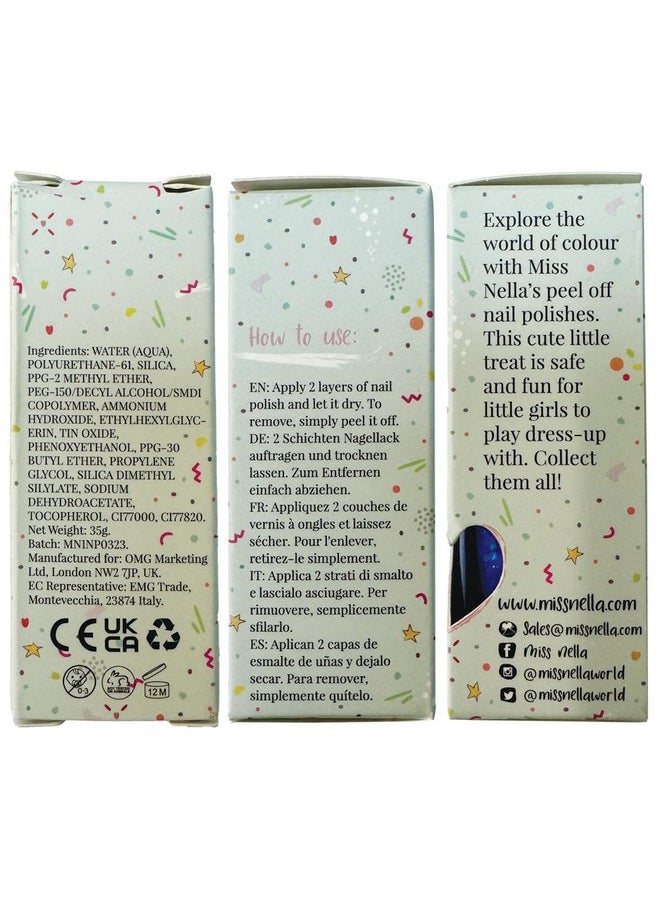 Ingredients: WATER (AQUA),
POLYURETHANE-61, SILICA,
PPG-2 METHYL ETHER,
PEG-150/DECYL ALCOHOL/SMDI
COPOLYMER, AMMONIUM
HYDROXIDE, ETHYLHEXYLGLYC-
ERIN, TIN OXIDE,
PHENOXYETHANOL, PPG-30
BUTYL ETHER, PROPYLENE
GLYCOL, SILICA DIMETHYL
SILYLATE, SODIUM
DEHYDROACETATE,
TOCOPHEROL, CI77000, CI77820.
Net Weight: 35g.
Batch: MNINP0323.
Manufactured for: OMG Marketing
Ltd, London NW2 7JP, UK.
EC Representative: EMG Trade,
Montevecchia, 23874 Italy.
CE UK
CA
0-3 NOT TESTED ON ANIMALS 12 M
How to use:
EN: Apply 2 layers of nail
polish and let it dry. To
remove, simply peel it off.
DE: 2 Schichten Nagellack
auftragen und trocknen
lassen. Zum Entfernen
einfach abziehen.
FR: Appliquez 2 couches de
vernis à ongles et laissez
sécher. Pour l'enlever,
retirez-le simplement.
IT: Applica 2 strati di smalto
e lascialo asciugare. Per
rimuovere, semplicemente
sfilarlo.
ES: Aplican 2 capas de
esmalte de uñas y dejalo
secar. Para remover,
simplemente quítelo.
Explore the
world of colour
with Miss
Nella's peel off
nail polishes.
This cute little
treat is safe
and fun for
little girls to
play dress-up
with. Collect
them all!
www.missnella.com
Sales@missnella.com
Miss Nella
@missnellaworld
@missnellaworld